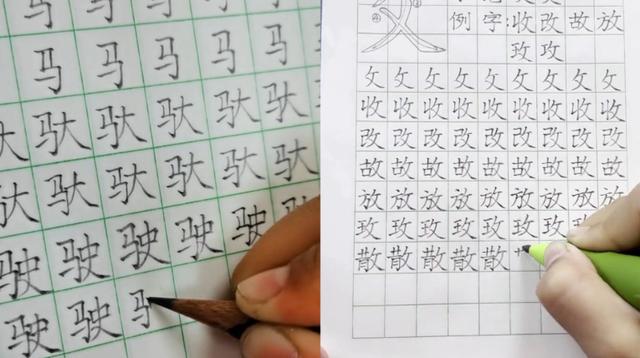 马 马
马 马 马 马 马
驮 驮 驮 驮 驮
驮 驮 驮 驮 驮 驮
驶 驶 驶 驶 驶
驶 驶
攵
例 字:收 改 故 放
玫 玫
攵 攵 攵 攵 攵 攵 攵 攵 攵
收 收 收 收 收 收 收 收 收
改 改 改 改 改 改 改 改 改
故 故 故 故 故 故 故 故 故
放 放 放 放 放 放 放 放 放
玫 玫 玫 玫 玫 玫 玫
散 散 散 散 散